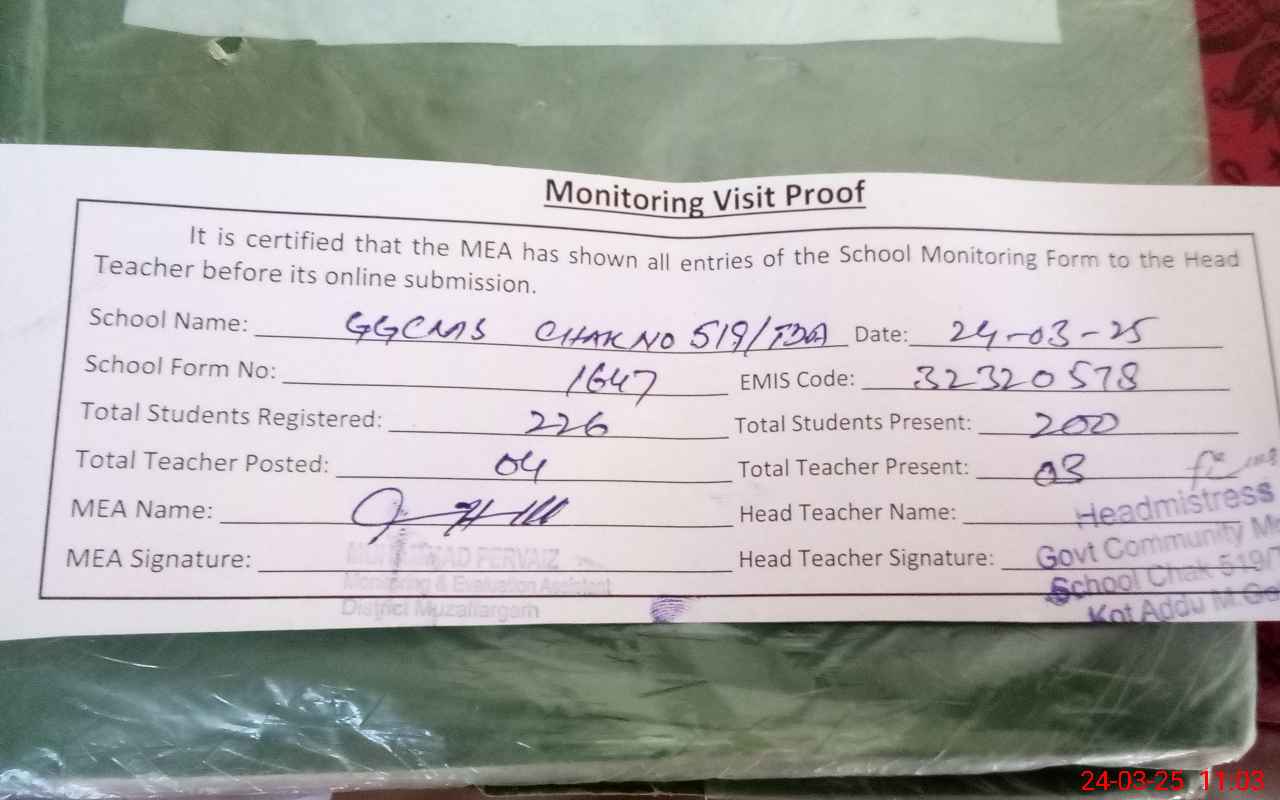 Monitoring Visit Proof
It is certified that the MEA has shown all entries of the School Monitoring Form to the Head
Teacher before its online submission.
School Name: GGCMS CHAK NO 519/TDA Date: 24-03-25
School Form No: 1647 EMIS Code: 32320578
Total Students Registered: 226 Total Students Present: 200
Total Teacher Posted: 04 Total Teacher Present: 03
MEA Name: Head Teacher Name:
Headmistress
MEA Signature: Head Teacher Signature:
PERVAIZ
Govt Community
Monitoring & Evaluation Assistant
School Chak 519/
District Muzaffargarh
Kot Addu
24-03-25 11:03